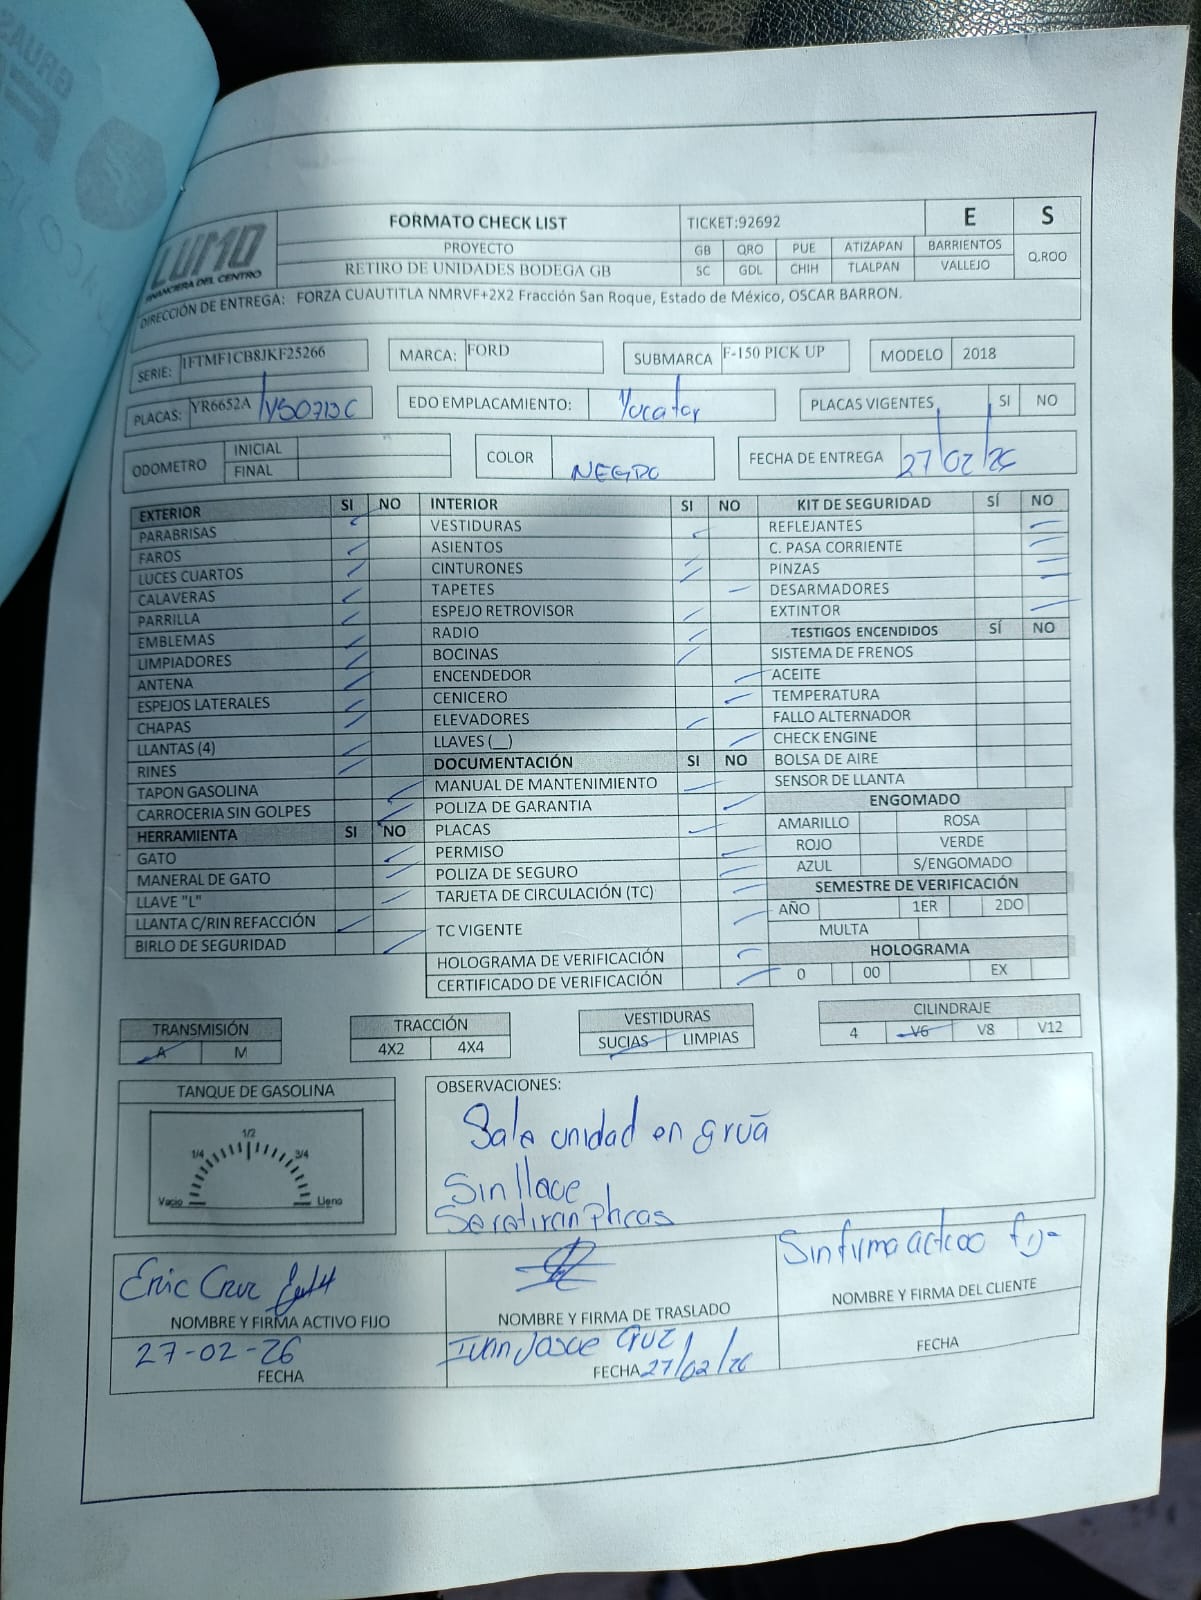 LUMO
FINANCIERA DEL CENTRO
FORMATO CHECK LIST
PROYECTO
RETIRO DE UNIDADES BODEGA GB
TICKET:92692
E
S
GB QRO PUE ATIZAPAN BARRIENTOS
SC GDL CHIH TLALPAN VALLEJO
Q.ROO
DIRECCIÓN DE ENTREGA: FORZA CUAUTITLA NMRVF+2X2 Fracción San Roque, Estado de México, OSCAR BARRON.
SERIE: 1FTMF1CB8JKF25266
MARCA: FORD
SUBMARCA F-150 PICK UP
MODELO 2018
PLACAS: YR6652A /YS0713C
EDO EMPLACAMIENTO: Yucatan
PLACAS VIGENTES SI NO
ODOMETRO INICIAL
FINAL
COLOR NEGRO
FECHA DE ENTREGA 27/02/26
EXTERIOR SI NO
PARABRISAS
FAROS
LUCES CUARTOS
CALAVERAS
PARRILLA
EMBLEMAS
LIMPIADORES
ANTENA
ESPEJOS LATERALES
CHAPAS
LLANTAS (4)
RINES
TAPON GASOLINA
CARROCERIA SIN GOLPES
HERRAMIENTA SI NO
GATO
MANERAL DE GATO
LLAVE "L"
LLANTA C/RIN REFACCIÓN
BIRLO DE SEGURIDAD
INTERIOR SI NO
VESTIDURAS
ASIENTOS
CINTURONES
TAPETES
ESPEJO RETROVISOR
RADIO
BOCINAS
ENCENDEDOR
CENICERO
ELEVADORES
LLAVES (__)
DOCUMENTACIÓN SI NO
MANUAL DE MANTENIMIENTO
POLIZA DE GARANTIA
PLACAS
PERMISO
POLIZA DE SEGURO
TARJETA DE CIRCULACIÓN (TC)
TC VIGENTE
HOLOGRAMA DE VERIFICACIÓN
CERTIFICADO DE VERIFICACIÓN
KIT DE SEGURIDAD SÍ NO
REFLEJANTES
C. PASA CORRIENTE
PINZAS
DESARMADORES
EXTINTOR
.TESTIGOS ENCENDIDOS SÍ NO
SISTEMA DE FRENOS
ACEITE
TEMPERATURA
FALLO ALTERNADOR
CHECK ENGINE
BOLSA DE AIRE
SENSOR DE LLANTA
ENGOMADO
AMARILLO ROSA
ROJO VERDE
AZUL S/ENGOMADO
SEMESTRE DE VERIFICACIÓN
AÑO 1ER 2DO
MULTA
HOLOGRAMA
0 00 EX
TRANSMISIÓN
A M
TRACCIÓN
4X2 4X4
VESTIDURAS
SUCIAS LIMPIAS
CILINDRAJE
4 V6 V8 V12
TANQUE DE GASOLINA
1/2
1/4 3/4
Vacio Lleno
OBSERVACIONES:
Sale unidad en grua
Sin llave
Se retiran Placas
Eric Cruz
NOMBRE Y FIRMA ACTIVO FIJO
27-02-26
FECHA
NOMBRE Y FIRMA DE TRASLADO
Ivan Josue Cruz
FECHA 27/02/26
Sin firma activo fijo
NOMBRE Y FIRMA DEL CLIENTE
FECHA
GRUAS